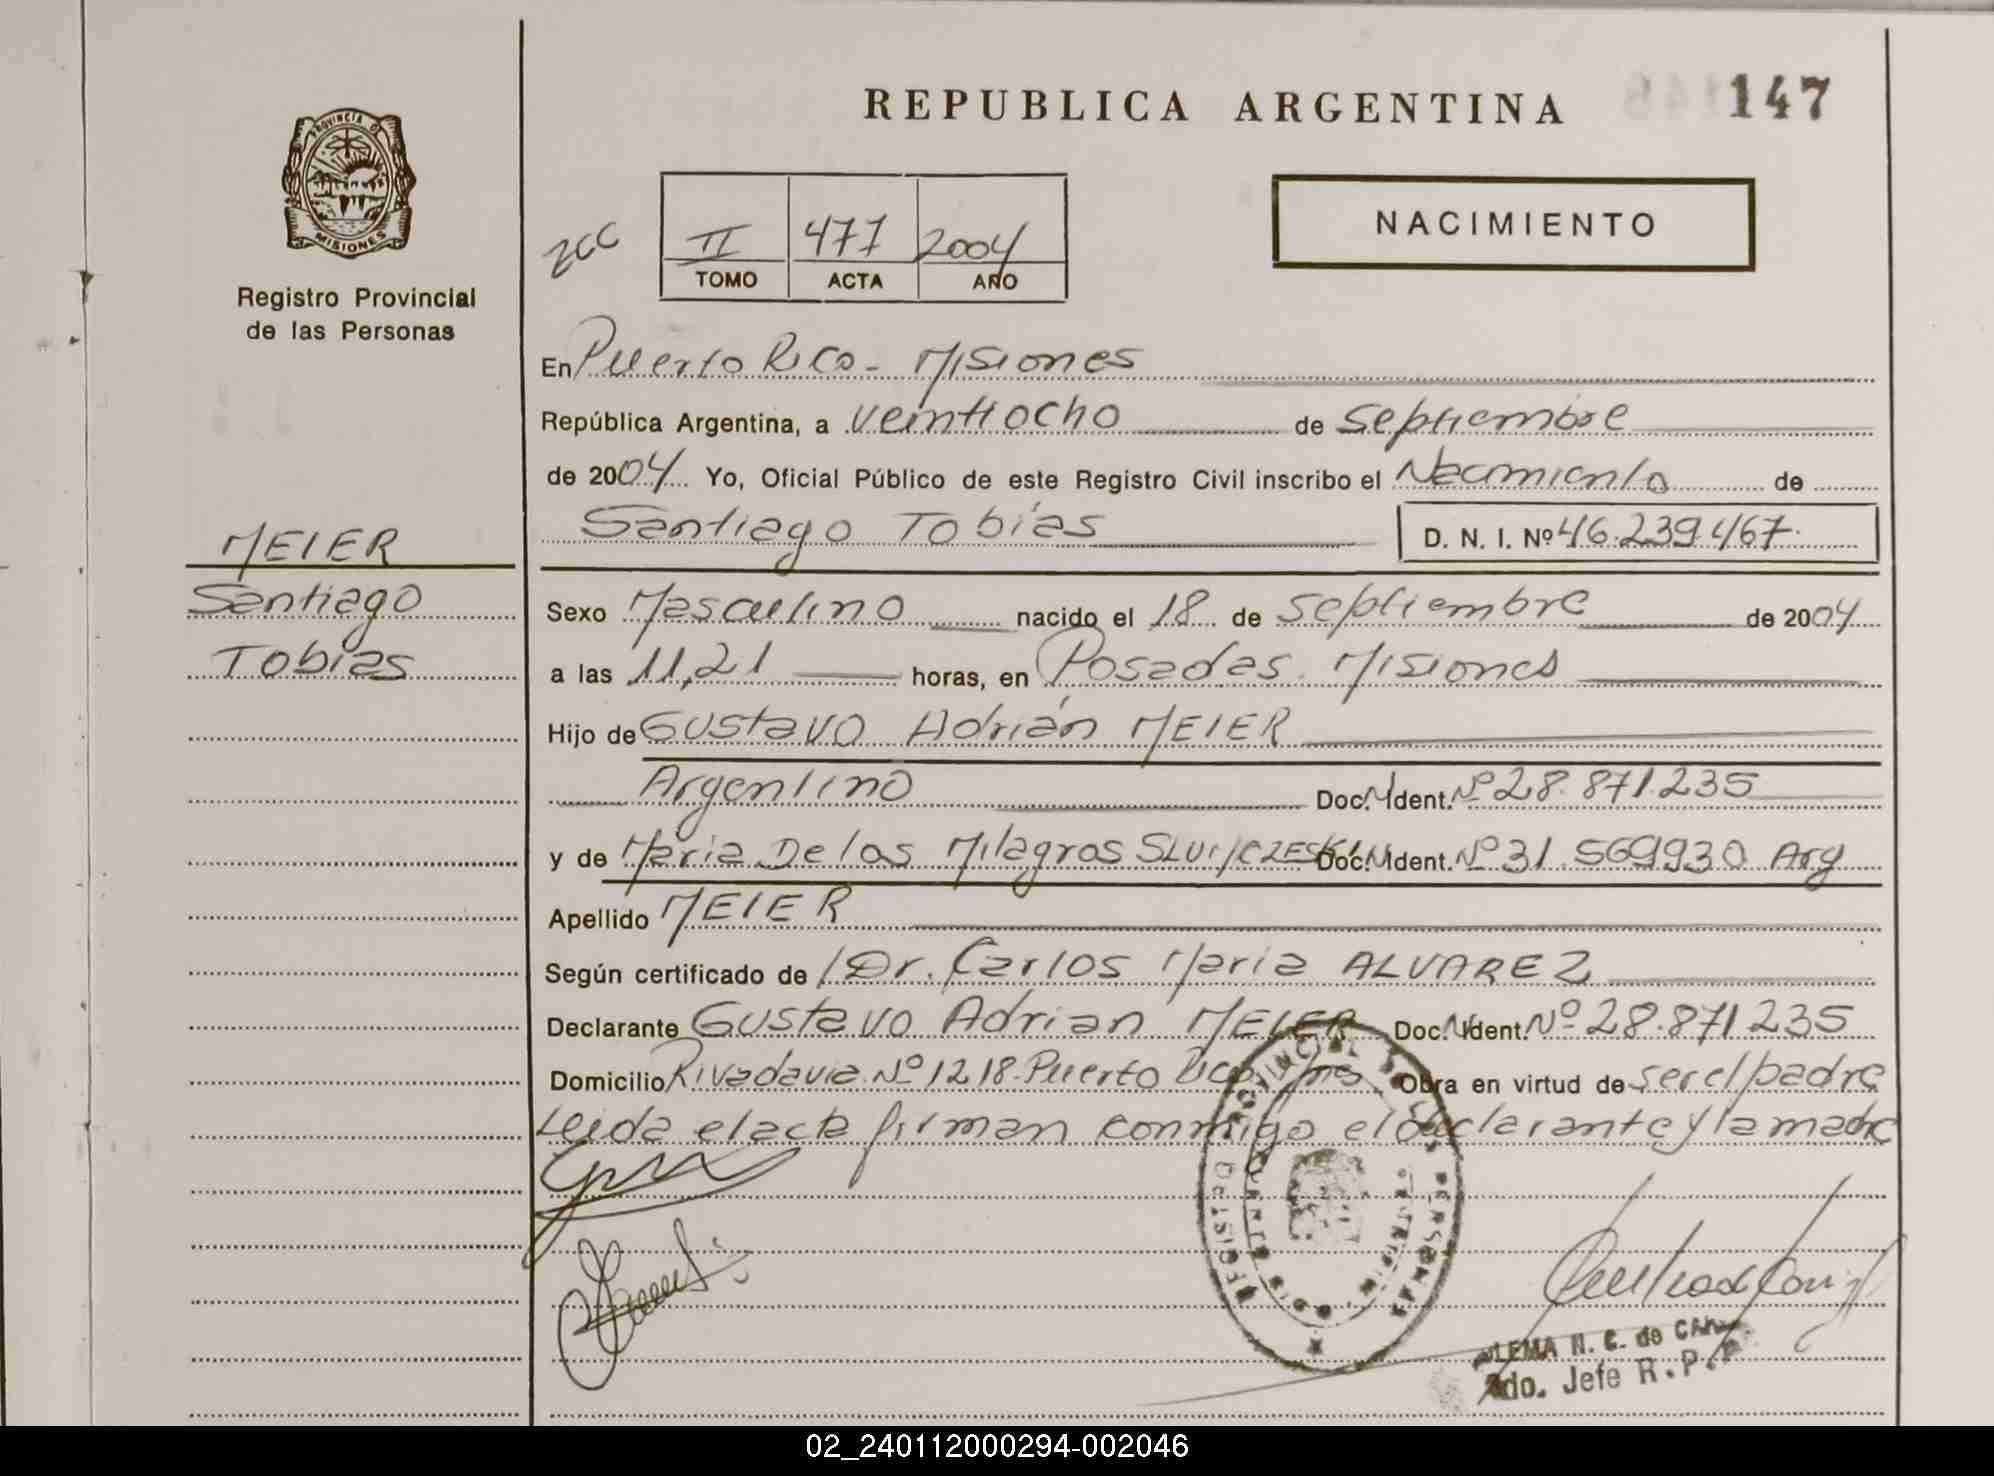 REPUBLICA ARGENTINA 147
PROVINCIA D
MISIONES
Registro Provincial
de las Personas
NACIMIENTO
II 477 2004
TOMO ACTA AÑO
En Puerto Rico - Misiones
República Argentina, a veintiocho de septiembre
de 2004 Yo, Oficial Público de este Registro Civil inscribo el Nacimiento de
Santiago Tobías D. N. I. Nº 46.239.467
MEIER
Santiago
Tobías
Sexo Masculino nacido el 18 de septiembre de 2004
a las 11,21 horas, en Posadas. Misiones
Hijo de Gustavo Adrián MEIER
Argentino Doc. Ident. Nº 28.871.235
y de Maria De los Milagros Doc. Ident. Nº 31.569930 Arg
Apellido MEIER
Según certificado de Dr. Carlos Maria ALVAREZ
Declarante Gustavo Adrian MEIER Doc. Ident. Nº 28.871.235
Domicilio Rivadavia Nº 1218-Puerto Rico Mnes Obra en virtud de ser el padre
Leida el acta firman conmigo el declarante y la madre
REGISTRO PROVINCIAL DE LAS PERSONAS
LEMA N. C. de
2do. Jefe R.P.P.
02_240112000294-002046